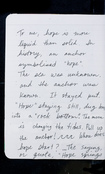 To me, hope is more
liquid than solid. In
history, an anchor
symbolised "hope"
The sea was unknown
and the anchor was
known. It stayed put.
"Hope" staying still, dug deep
into a "rock bottom". The sea
is changing the tides. Pull up
the anchor! Where does
hope start? The saying
or quote, "Hope springs